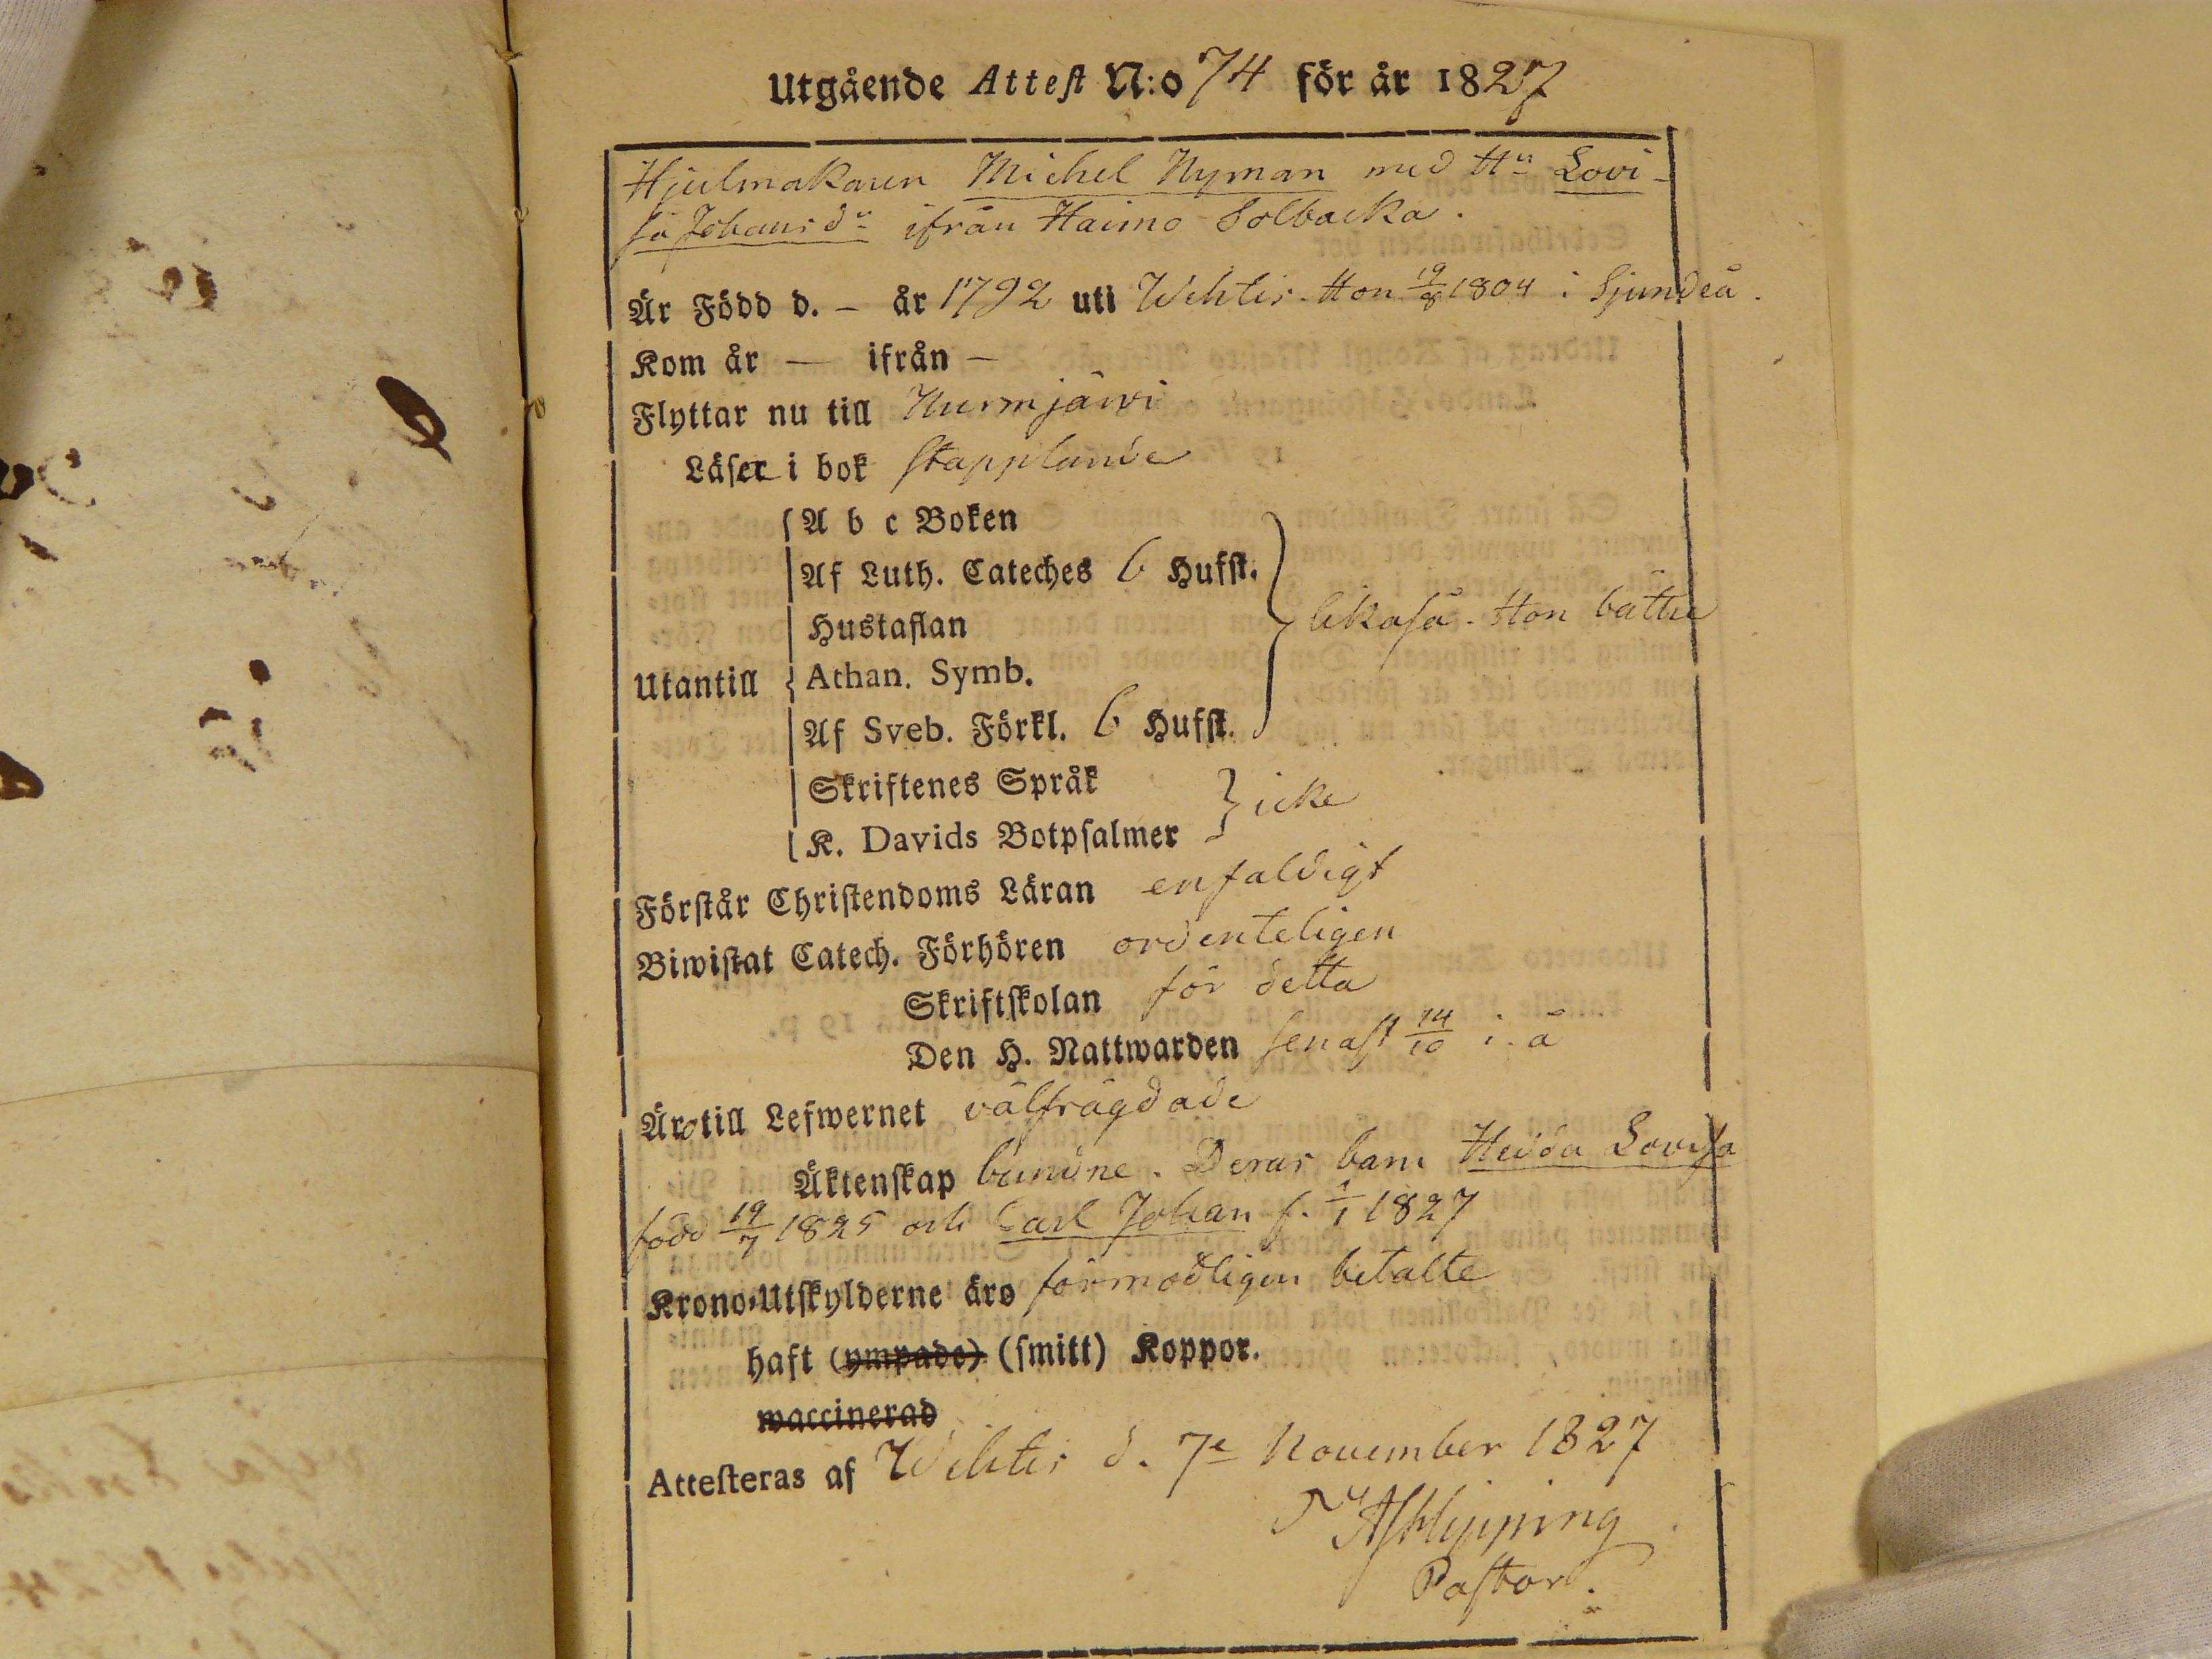 Utgående Attest N:o 74 för år 1827
Hjulmakaren Michel Nyman med Hu Lovi-
sa Johansdr ifrån Haimo Solbacka.
Är Född d. – år 1792 uti Wichtis. Hon 19/8 1804 i Sjundeå.
Kom år — ifrån –
Flyttar nu till Nurmijärvi
Läser i bok stapplande
A b c Boken
Af Luth. Cateches 6 Hufst.
Hustaflan
likaså. Hon bättre
Utantill Athan. Symb.
Af Sveb. Förkl. 6 Hufst.
Skriftenes Språk
icke
K. Davids Botpsalmer
Förstår Christendoms Läran enfaldigt
Biwistat Catech. Förhören ordenteligen
Skriftskolan för detta
Den H. Nattwarden senast 14/10 i. å
Äro till Lefwernet välfrägdade
Äktenskap bundne. Deras barn Hedda Lovisa
född 19/7 1825 och Carl Johan f. 1/1 1827
Krono-Utskylderne äro förmodligen betalte
haft (ympade) (smitt) Koppor.
waccinerad
Attesteras af Wichtis d. 7e November 1827
Pastor.